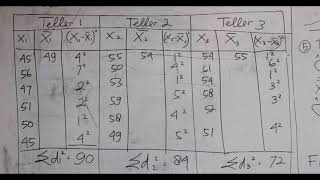 Teller 1 Teller 2 Teller 3
X₁ X̄₁ (X₁-X̄₁)² X₂ X̄₂ (X₂-X̄₂)² X₃ X̄₃ (X₃-X̄₃)²
45 49 4² 55 54 1² 54 55 1²
56 7² 50 4² 61 6²
47 2² 53 1² 54 1²
51 2² 59 5² 58 3²
50 1² 58 4² 52 3²
45 4² 49 5² 51 4²
∑d₁²=90 ∑d₂²=84 ∑d₃²=72
⑤